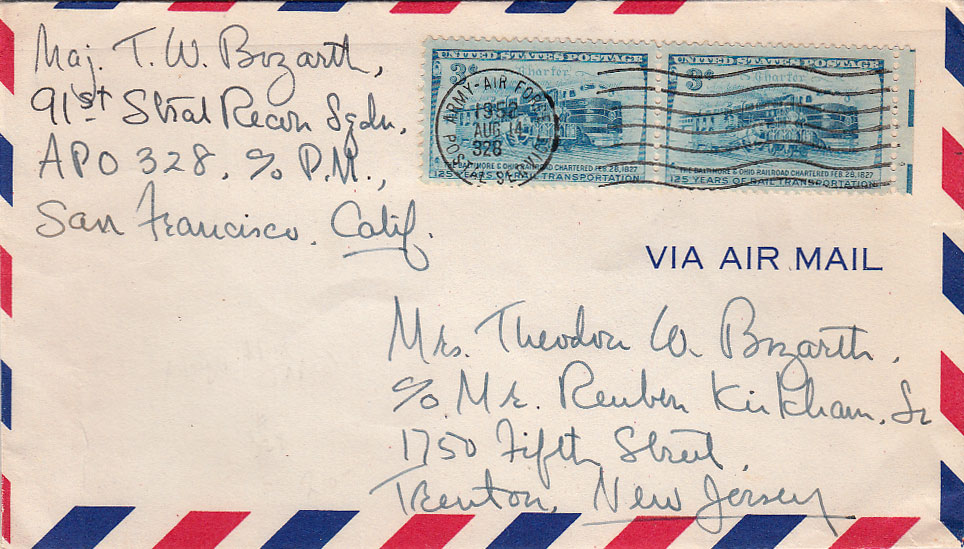 Maj. T. W. Bozarth,
91st Strat Recon Sqdn,
APO 328, c/o P.M.,
San Francisco, Calif.
UNITED STATES POSTAGE
3¢ Charter
THE BALTIMORE & OHIO RAILROAD CHARTERED FEB. 28, 1827
125 YEARS OF RAIL TRANSPORTATION
UNITED STATES POSTAGE
3¢ Charter
THE BALTIMORE & OHIO RAILROAD CHARTERED FEB. 28, 1827
125 YEARS OF RAIL TRANSPORTATION
ARMY-AIR FORCE
1952
AUG 14
328
VIA AIR MAIL
Mrs. Theodore W. Bozarth,
c/o Mr. Reuben Kirkham, Sr
1750 Fifth Street,
Trenton, New Jersey